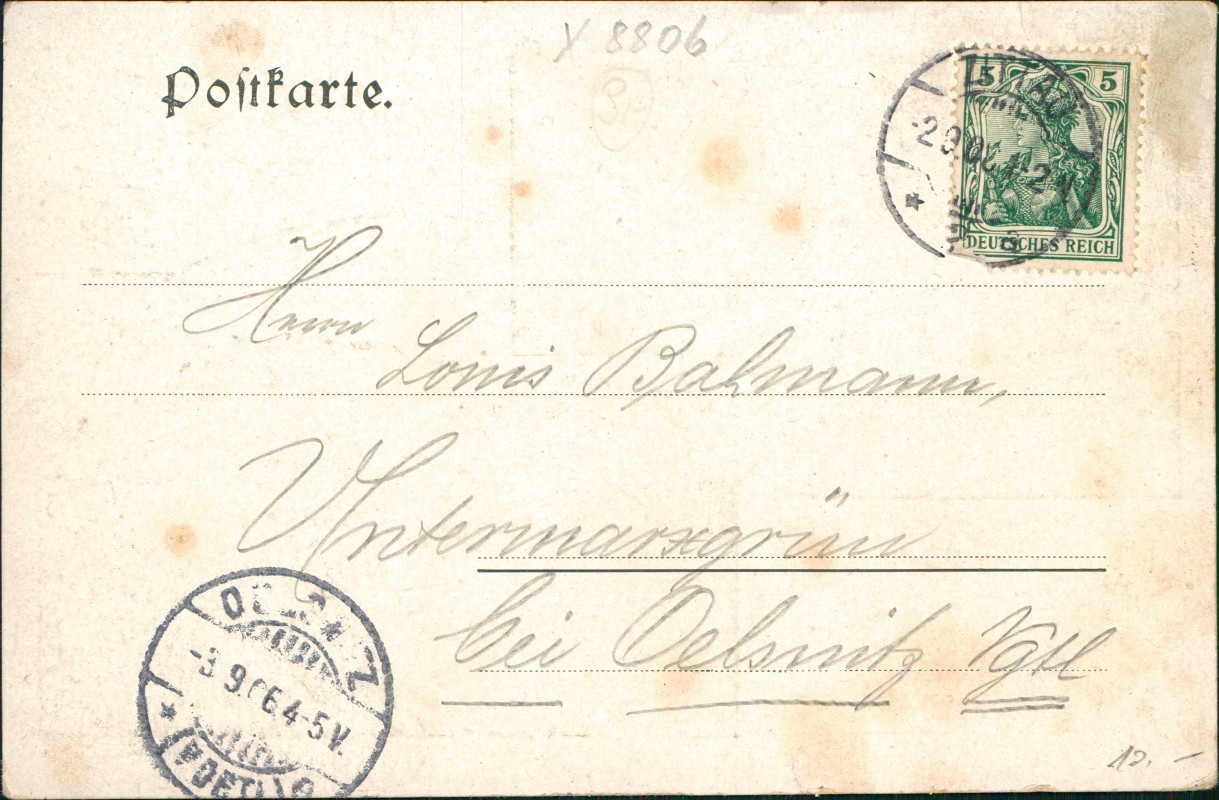 Y 8806
Postkarte.
5 5
ZITTAU
-2 9.06. 1-2 N
* a
DEUTSCHES REICH
Herrn
Louis Bahmann,
Untermarxgrün
bei Oelsnitz Vgtl
-3.9.06.4-5V.
*
12.-